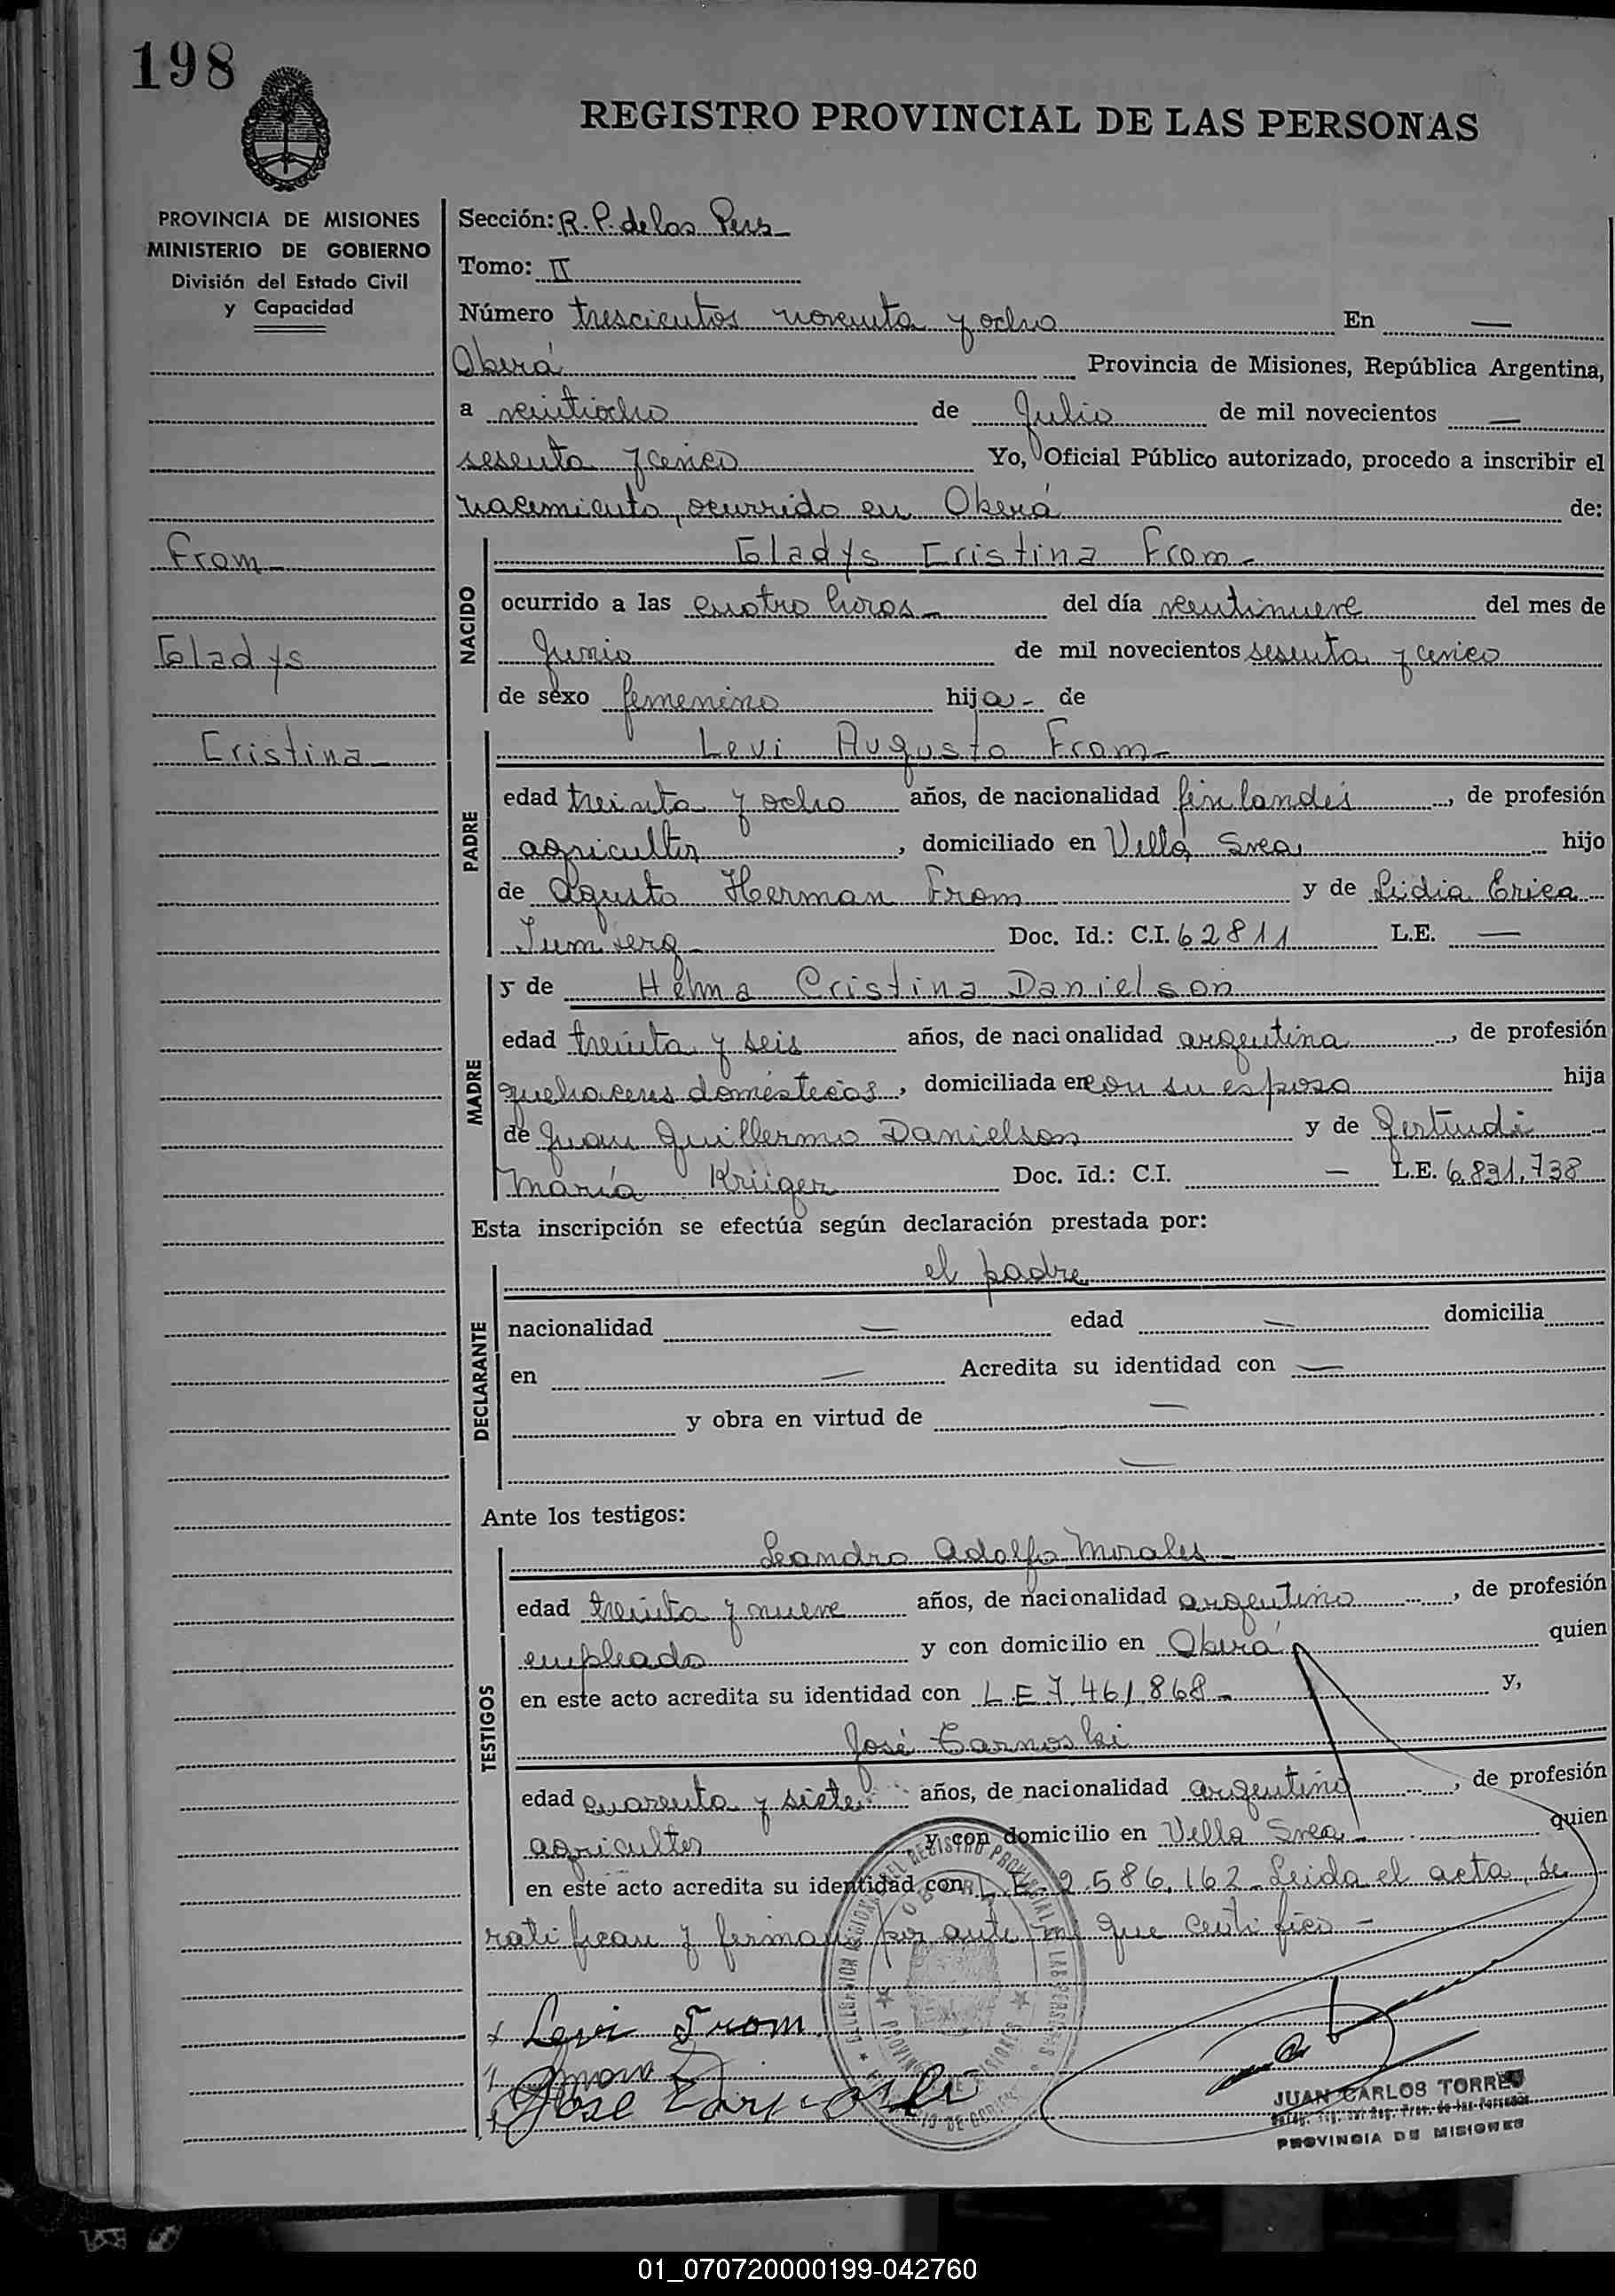 198
REGISTRO PROVINCIAL DE LAS PERSONAS
PROVINCIA DE MISIONES
MINISTERIO DE GOBIERNO
División del Estado Civil
y Capacidad
From
Gladys
Cristina
Sección: R. P. de las Pers
Tomo: II
Número trescientos noventa y ocho En —
Oberá Provincia de Misiones, República Argentina,
a veintiocho de Julio de mil novecientos —
sesenta y cinco Yo, Oficial Público autorizado, procedo a inscribir el
nacimiento, ocurrido en Oberá de:
NACIDO
Gladys Cristina From
ocurrido a las cuatro horas del día veintinueve del mes de
Junio de mil novecientos sesenta y cinco
de sexo femenino hija de
PADRE
Levi Augusto From
edad treinta y ocho años, de nacionalidad finlandés, de profesión
agricultor, domiciliado en Villa Svea, hijo
de Agusto Herman From y de Lidia Erica
Doc. Id.: C.I. 62811 L.E. —
MADRE
y de Helma Cristina Danielson
edad treinta y seis años, de nacionalidad argentina, de profesión
quehaceres domésticos, domiciliada en con su esposo hija
de Juan Guillermo Danielson y de Gertrudi
María Krüger Doc. Id.: C.I. — L.E. 6.831.738
Esta inscripción se efectúa según declaración prestada por:
DECLARANTE
el padre
nacionalidad — edad — domicilia
en — Acredita su identidad con —
y obra en virtud de —
—
Ante los testigos:
TESTIGOS
Leandro Adolfo Morales
edad treinta y nueve años, de nacionalidad argentino, de profesión
empleado y con domicilio en Oberá quien
en este acto acredita su identidad con L.E 7.461.868 y,
José Carnoski
edad cuarenta y siete años, de nacionalidad argentino, de profesión
agricultor y con domicilio en Villa Svea quien
en este acto acredita su identidad con L.E. 2.586.162 Leida el acta, se
ratifican y firman por ante mi que certifico
Levi From
Jose
JUAN CARLOS TORRES
PROVINCIA DE MISIONES
01_070720000199-042760